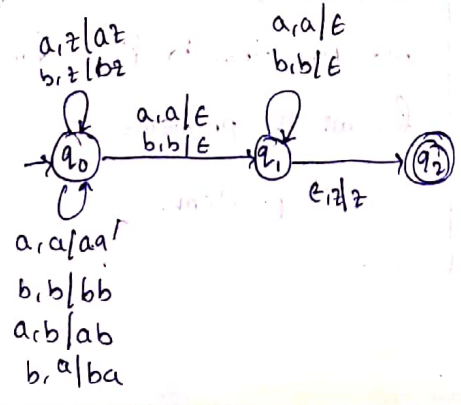 a,z|az
b,z|bz
a,a|ε
b,b|ε
a,a|ε
b,b|ε
q0
q1
q2
ε,z|z
a,a|aa
b,b|bb
a,b|ab
b,a|ba